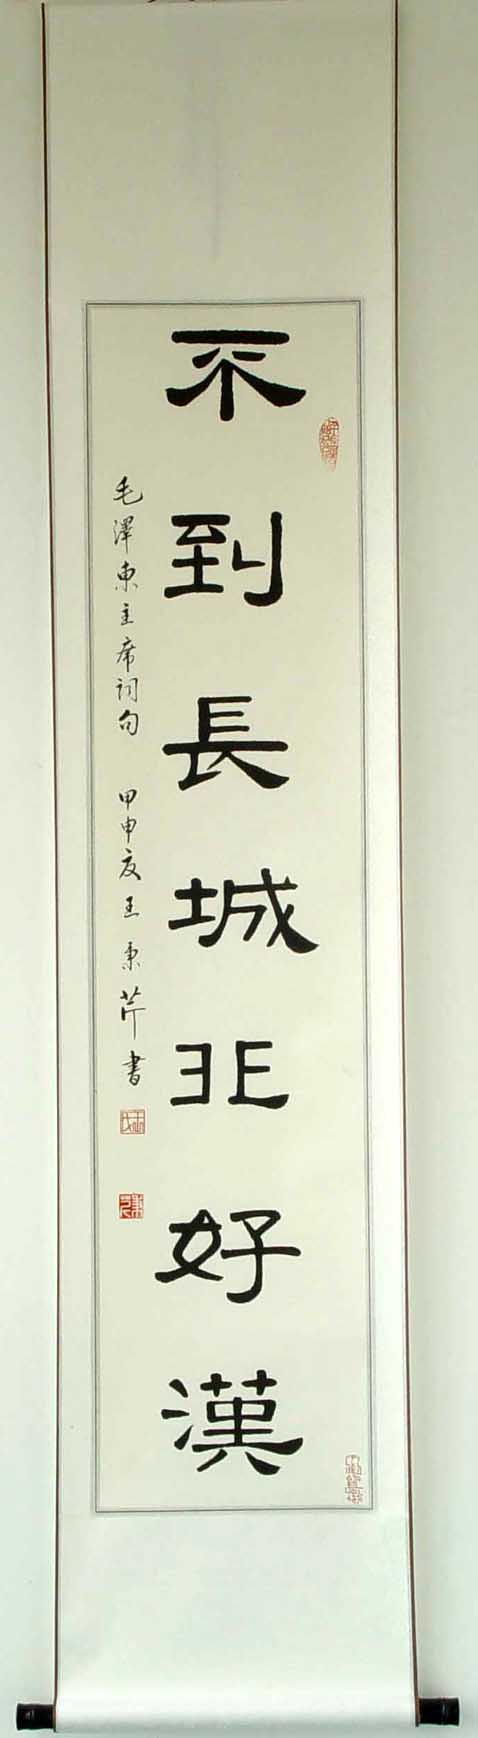 不到長城非好漢
毛澤東主席詞句 甲申夏王秉芹書